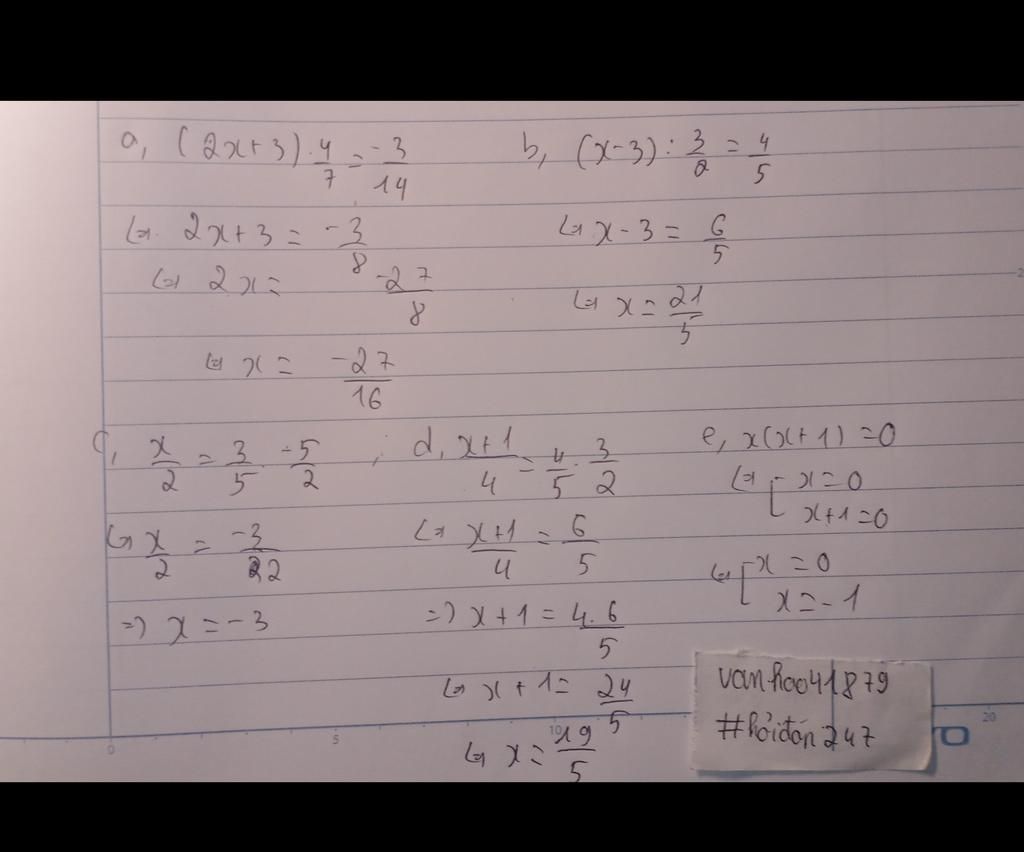 a, (2x+3).4/7 = -3/14
⇔ 2x+3 = -3/8
⇔ 2x = -27/8
⇔ x = -27/16
b, (x-3):3/2 = 4/5
⇔ x-3 = 6/5
⇔ x = 21/5
c, x/2 = 3/5 . -5/2 ;
⇔ x/2 = -3/2
⇒ x = -3
d, x+1/4 = 4/5 . 3/2
⇔ x+1/4 = 6/5
⇒ x+1 = 4.6/5
⇔ x+1 = 24/5
⇔ x = 19/5
e, x(x+1) = 0
⇔ [ x = 0
x+1 = 0
⇔ [ x = 0
x = -1
vanhoo41879
#hỏiđán247
0 5 10 20